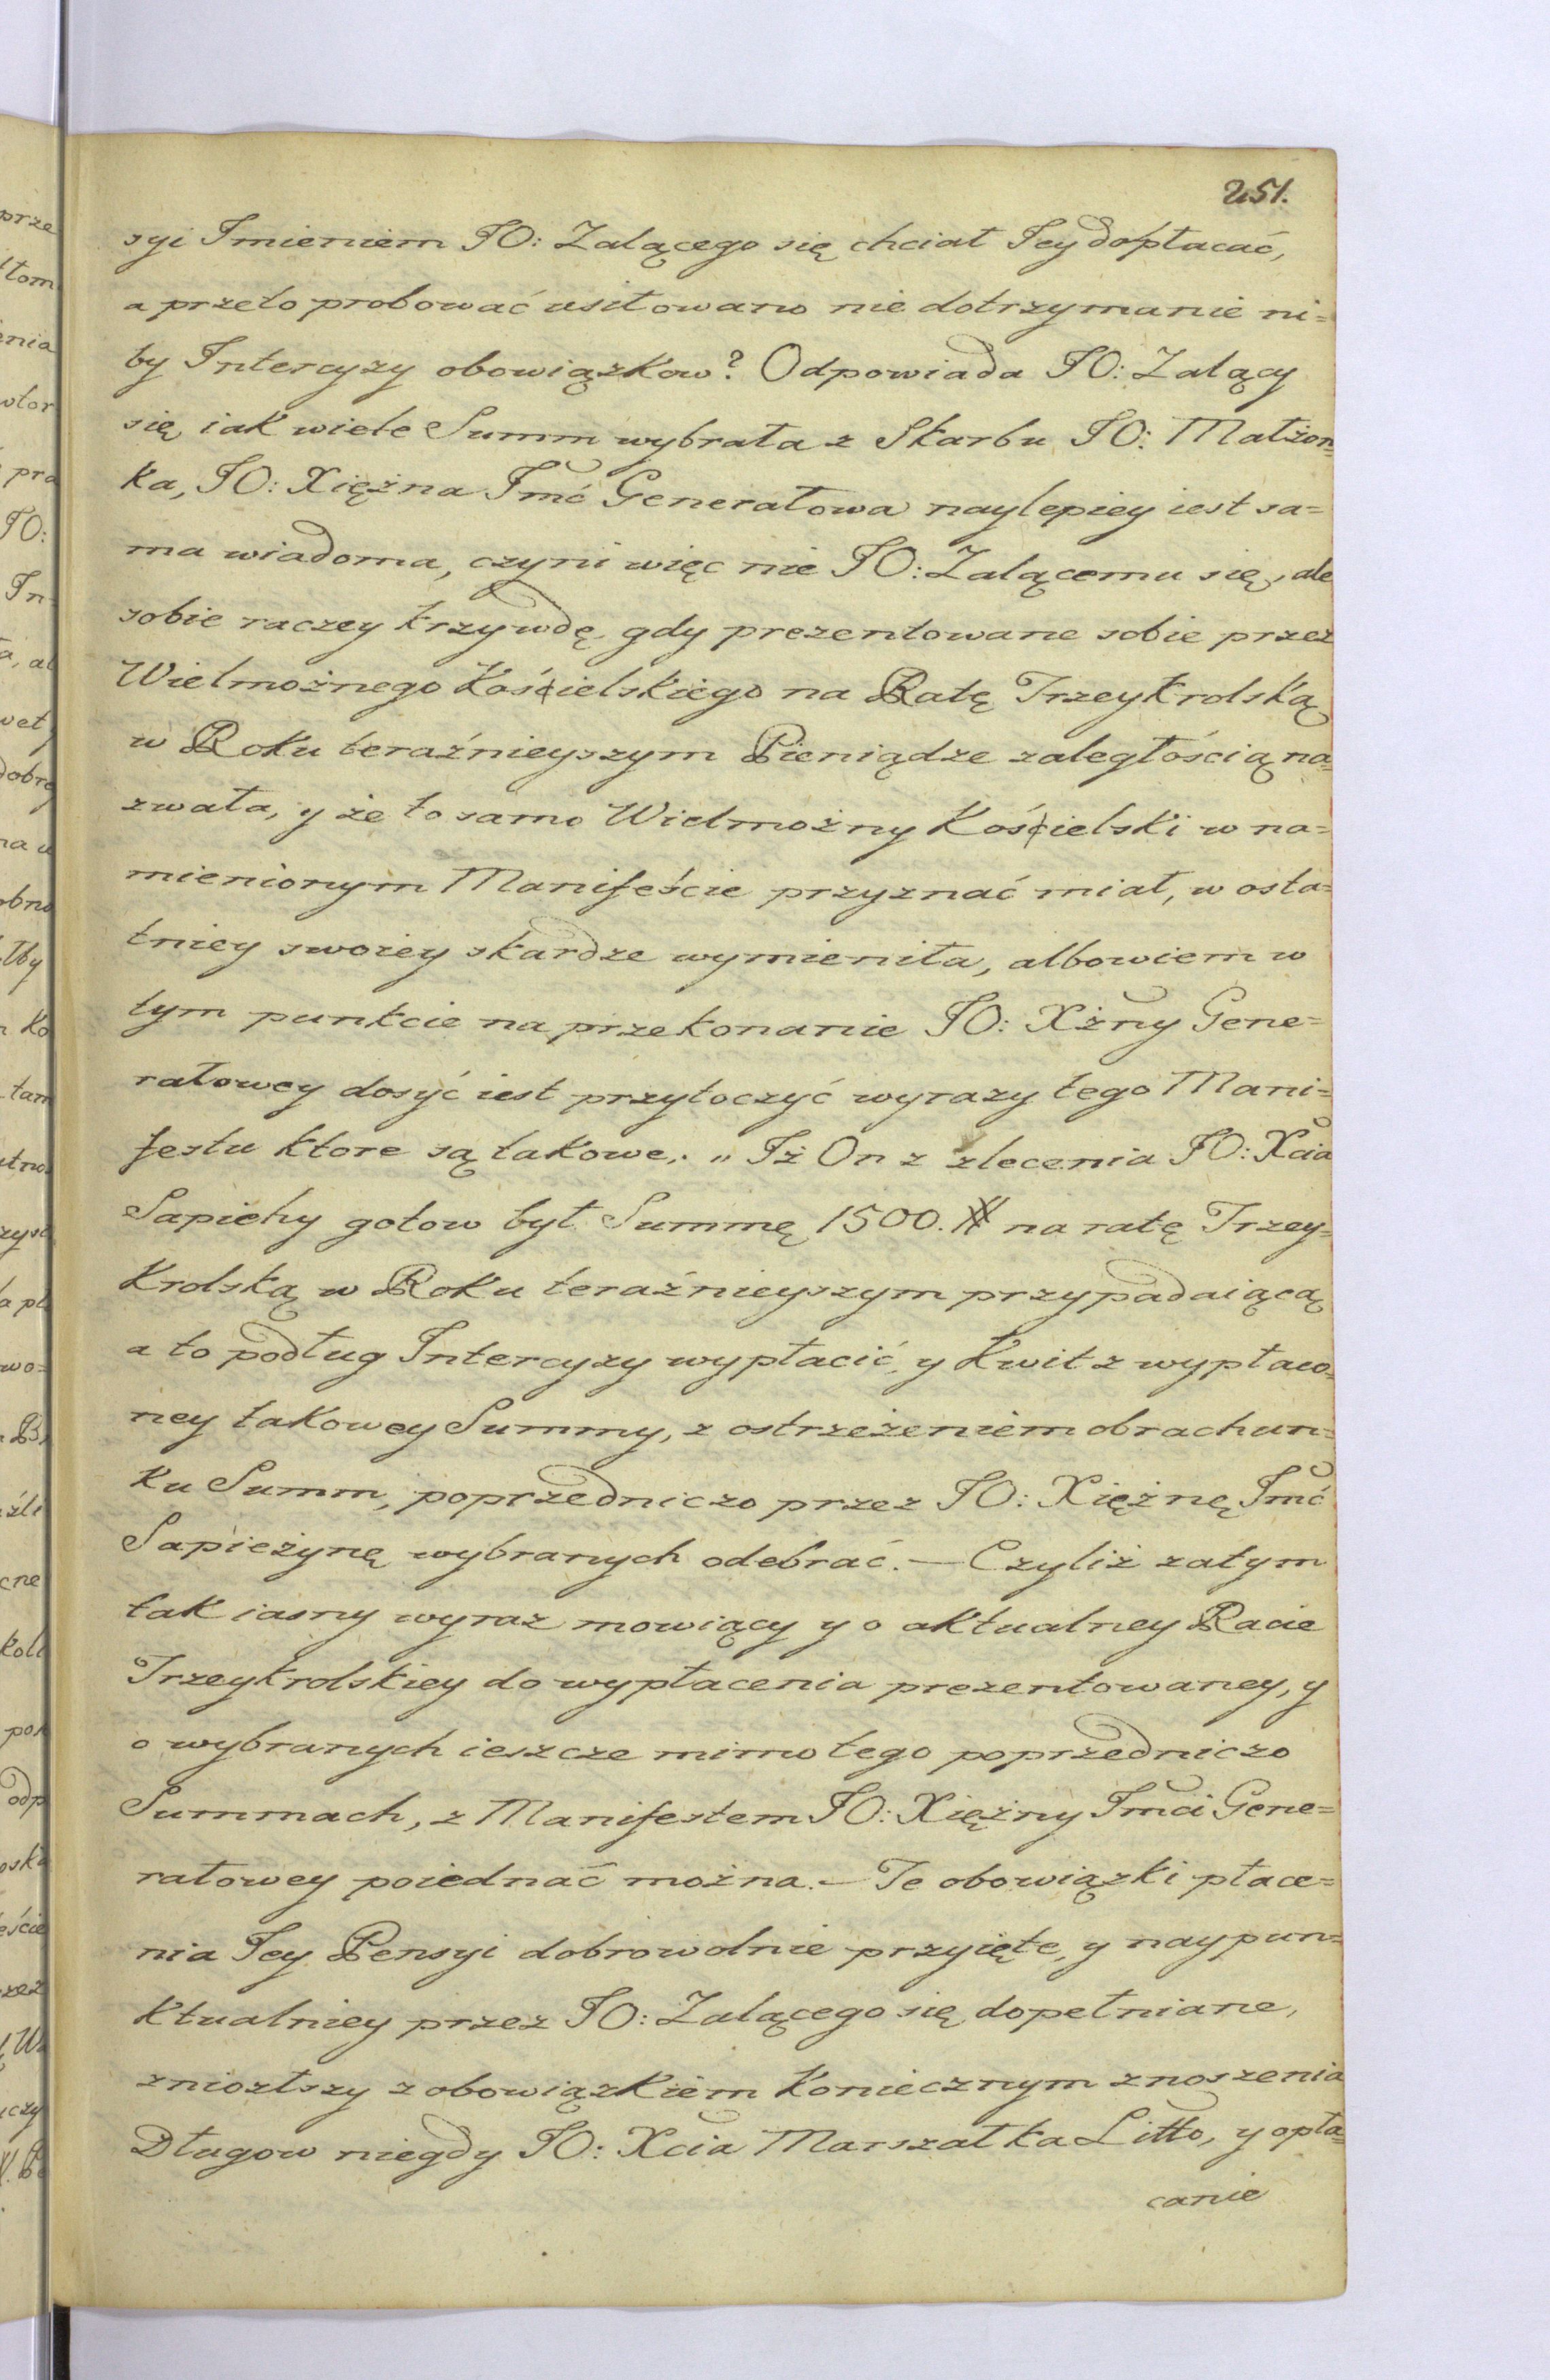 251.
syi Imieniem JO: Żalącego się chciał Jey dopłacać,
a przeto probować usiłowano nie dotrzymanie ni=
by Intercyzy obowiązkow? Odpowiada JO: Żalący
się, iak wiele Summ wybrała z Skarbu JO: Małżon=
ka, JO: Xiężna Jmć Generałowa naylepiey iest sa=
ma wiadoma, czyni więc nie JO: Żalącemu się, ale
sobie raczey krzywdę, gdy prezentowane sobie przez
Wielmożnego Kościelskiego na Ratę Trzeykrolską
w Roku teraźnieyszym Pieniądze zaległością na=
zwała, y że to samo Wielmożny Kościelski w na=
mienionym Manifeście przyznać miał, w osta=
tniey swoiey skardze wymieniła, albowiem w
tym punkcie na przekonanie JO: Xżny Gene=
rałowey dosyć iest przytoczyć wyrazy tego Mani=
festu ktore są takowe: „ Iż On z zlecenia JO: Xcia
Sapiehy gotow był Summę 1500. # na ratę Trzey=
Krolską w Roku teraźnieyszym przypadaiącą
a to podług Intercyzy wypłacić, y Kwit z wypłaco=
ney takowey Summy, z ostrzeżeniem obrachun=
ku Summ, poprzedniczo przez JO: Xiężnę Jmć
Sapieżynę wybranych odebrać. — Czyliż zatym
tak iasny wyraz mowiący y o aktualney Racie
Trzeykrolskiey do wypłacenia prezentowaney, y
o wybranych ieszcze mimo tego poprzedniczo
Summach, z Manifestem JO: Xiężny Jmci Gene=
rałowey poiednać można. — Te obowiązki płace=
nia Jey Pensyi dobrowolnie przyięte, y naypun=
ktualniey przez JO: Żalącego się dopełniane,
zniozłszy z obowiązkiem Koniecznym znoszenia
Długow niegdy JO: Xcia Marszałka Litto, y opła=
canie